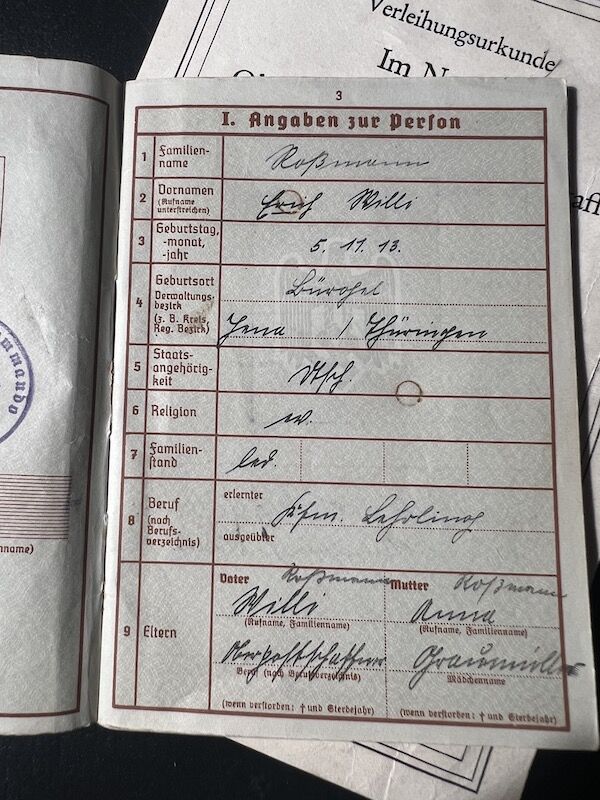 Verleihungsurkunde
Im N
3
I. Angaben zur Person
1 Familien-
name
Roßmann
2 Vornamen
(Rufname
unterstreichen)
Erich Willi
3 Geburtstag,
-monat,
-jahr
5. 11. 13.
4 Geburtsort
Verwaltungs-
bezirk
(z. B. Kreis,
Reg. Bezirk)
Bürgel
Jena / Thüringen
5 Staats-
angehörig-
keit
dtsch.
6 Religion
ev.
7 Familien-
stand
led.
8 Beruf
(nach
Berufs-
verzeichnis)
erlernter
Kfm. Lehrling
ausgeübter
9 Eltern
Vater Roßmann
Willi
(Rufname, Familienname)
Oberpostschaffner
Beruf (nach Berufsverzeichnis)
(wenn verstorben: † und Sterbejahr)
Mutter Roßmann
Anna
(Rufname, Familienname)
Mädchenname
(wenn verstorben: † und Sterbejahr)
mmando
name)